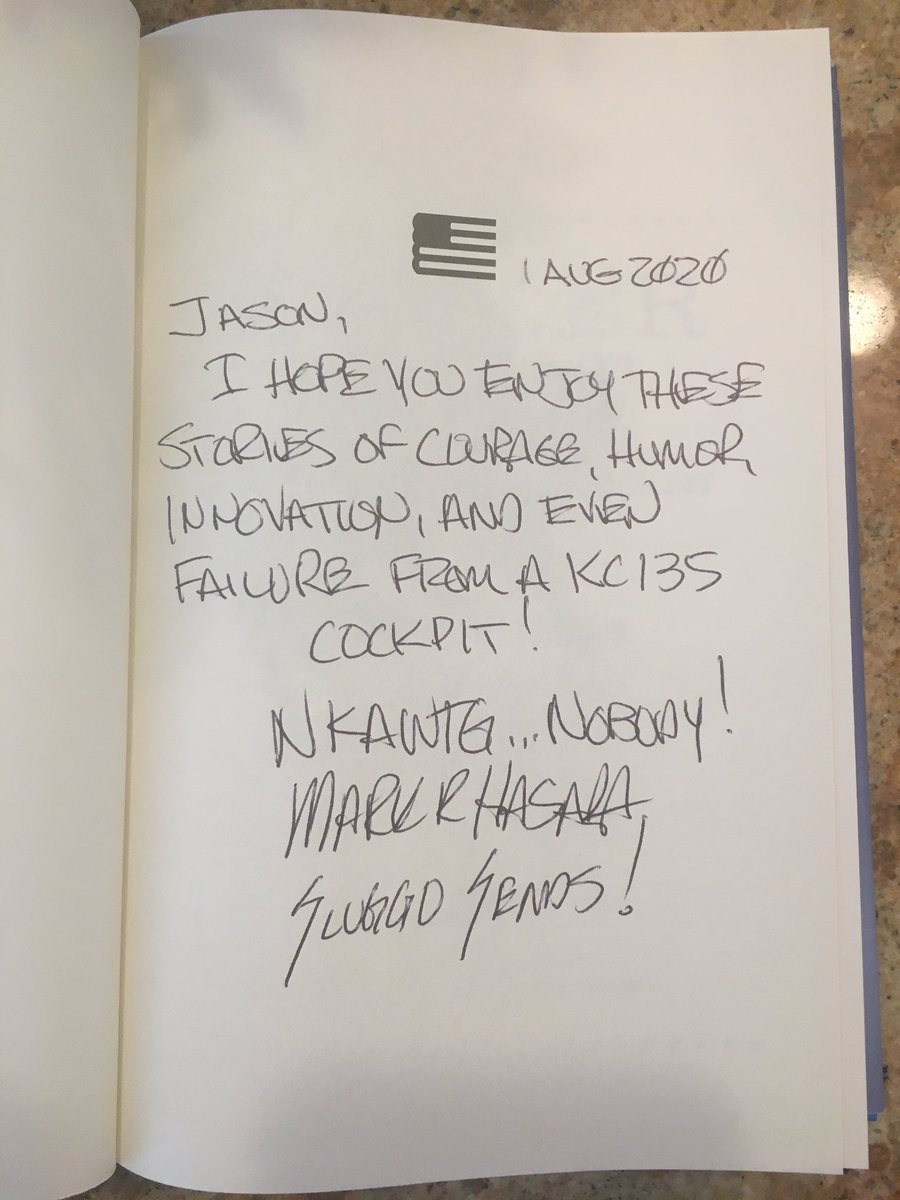 1 AUG 2020
JASON,
I HOPE YOU ENJOY THESE
STORIES OF COURAGE, HUMOR,
INNOVATION, AND EVEN
FAILURE FROM A KC135
COCKPIT!
NKAWTG...NOBODY!
MARK R HASARA
SLUGGO SENDS!